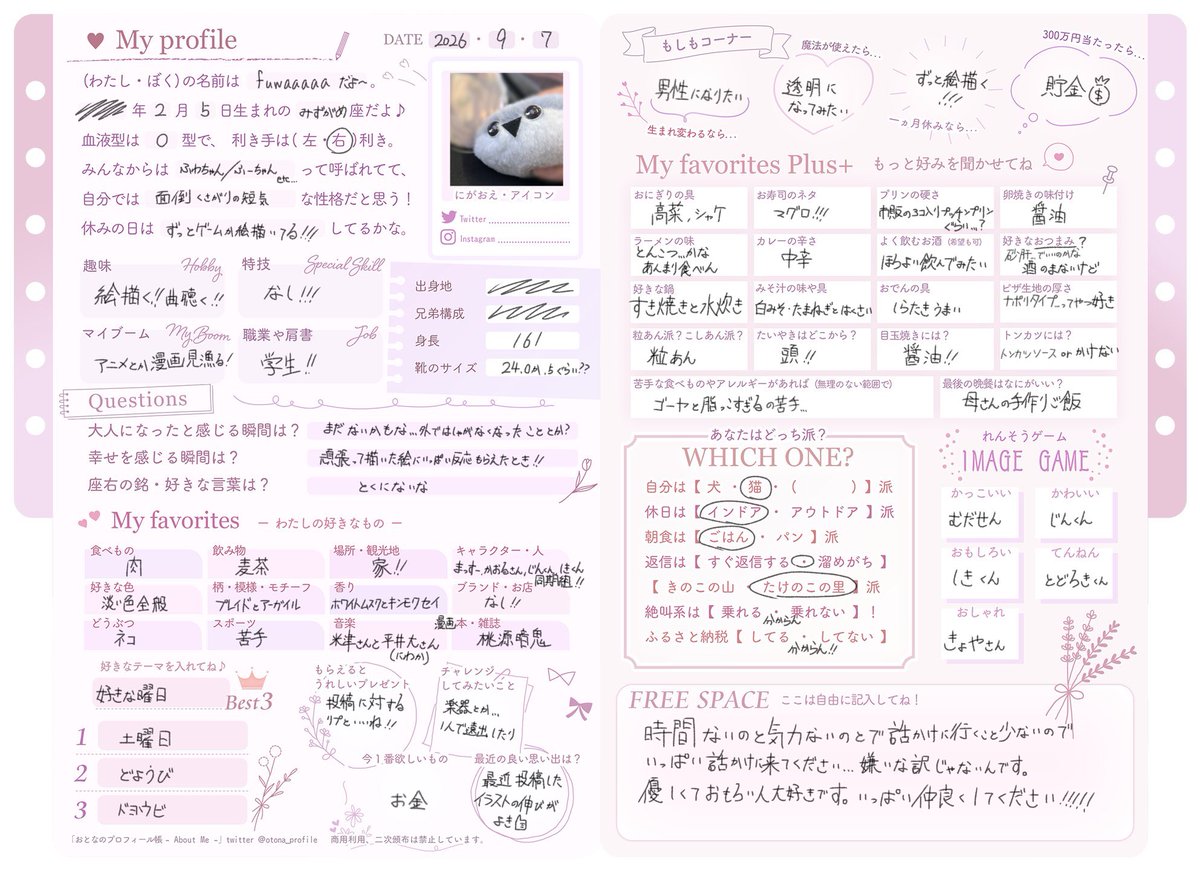 My profile
DATE 2026・9・7
(わたし・ぼく)の名前は fuwaaaaa だよ〜。
年 2 月 5 日生まれの みずがめ座だよ♪
血液型は O 型で、 利き手は(左・右)利き。
みんなからは ふわちゃん/ふーちゃん etc... って呼ばれてて、
自分では 面倒くさがりの短気 な性格だと思う!
休みの日は ずっとゲームか絵描いてる!!! してるかな。
にがおえ・アイコン
Twitter
Instagram
趣味 Hobby
絵描く!!曲聴く!!
特技 Special Skill
なし!!!
マイブーム My Boom
アニメとか漫画見漁る!
職業や肩書 Job
学生!!
出身地
兄弟構成
身長 161
靴のサイズ 24.0か.5ぐらい??
Questions
大人になったと感じる瞬間は? まだないかもな...外ではしゃがなくなったこととか?
幸せを感じる瞬間は? 頑張って描いた絵にいっぱい反応もらえたとき!!
座右の銘・好きな言葉は? とくにないな
My favorites ー わたしの好きなもの ー
食べもの 肉
飲み物 麦茶
場所・観光地 家!!
キャラクター・人 まっすー、かおるさん、じんくん、しきくん 同期組!!
好きな色 淡い色全般
柄・模様・モチーフ プレイドとアーガイル
香り ホワイトムスクとキンモクセイ
ブランド・お店 なし!!
どうぶつ ネコ
スポーツ 苦手
音楽 米津さんと平井大さん(にわか)
漫画 本・雑誌 桃源暗鬼
好きなテーマを入れてね♪
好きな曜日
Best3
1 土曜日
2 どようび
3 ドヨウビ
もらえるとうれしいプレゼント
投稿に対する
リプといいね!!
チャレンジしてみたいこと
楽器とか...
1人で遠出したり
今1番欲しいもの
お金
最近の良い思い出は?
最近投稿した
イラストの伸びが
よき
「おとなのプロフィール帳 - About Me -」twitter @otona_profile 商用利用、二次頒布は禁止しています。
もしもコーナー
男性になりたい
生まれ変わるなら...
魔法が使えたら...
透明に
なってみたい
ずっと絵描く
!!!
一ヵ月休みなら...
300万円当たったら...
貯金
My favorites Plus+ もっと好みを聞かせてね
おにぎりの具 高菜,シャケ
お寿司のネタ マグロ!!!
プリンの硬さ 市販の3コ入りプッチンプリンぐらい...?
卵焼きの味付け 醤油
ラーメンの味 とんこつ...かな あんまり食べん
カレーの辛さ 中辛
よく飲むお酒 (希望も可) ほろよい飲んでみたい
好きなおつまみ? 砂肝...でいいのかな 酒のまないけど
好きな鍋 すき焼きと水炊き
みそ汁の味や具 白みそ・たまねぎとはくさい
おでんの具 しらたきうまい
ピザ生地の厚さ ナポリタイプ...ってやつ好き
粒あん派?こしあん派? 粒あん
たいやきはどこから? 頭!!
目玉焼きには? 醤油!!
トンカツには? トンカツソース or かけない
苦手な食べものやアレルギーがあれば (無理のない範囲で) ゴーヤと脂っこすぎるの苦手...
最後の晩餐はなにがいい? 母さんの手作りご飯
あなたはどっち派?
WHICH ONE?
自分は【 犬 ・ 猫 ・ ( ) 】派
休日は【 インドア ・ アウトドア 】派
朝食は【 ごはん ・ パン 】派
返信は【 すぐ返信する ・ 溜めがち 】
【 きのこの山 ・ たけのこの里 】派
絶叫系は【 乗れる ・ 乗れない 】!
分からん
ふるさと納税【 してる ・ してない 】
分からん!!
れんそうゲーム
IMAGE GAME
かっこいい むだせん
かわいい じんくん
おもしろい しきくん
てんねん とどろきくん
おしゃれ きょやさん
FREE SPACE ここは自由に記入してね!
時間ないのと気力ないのとで話かけに行くこと少ないので
いっぱい話かけに来てください...嫌いな訳じゃないんです。
優しくておもろい人大好きです。いっぱい仲良くしてください!!!!!